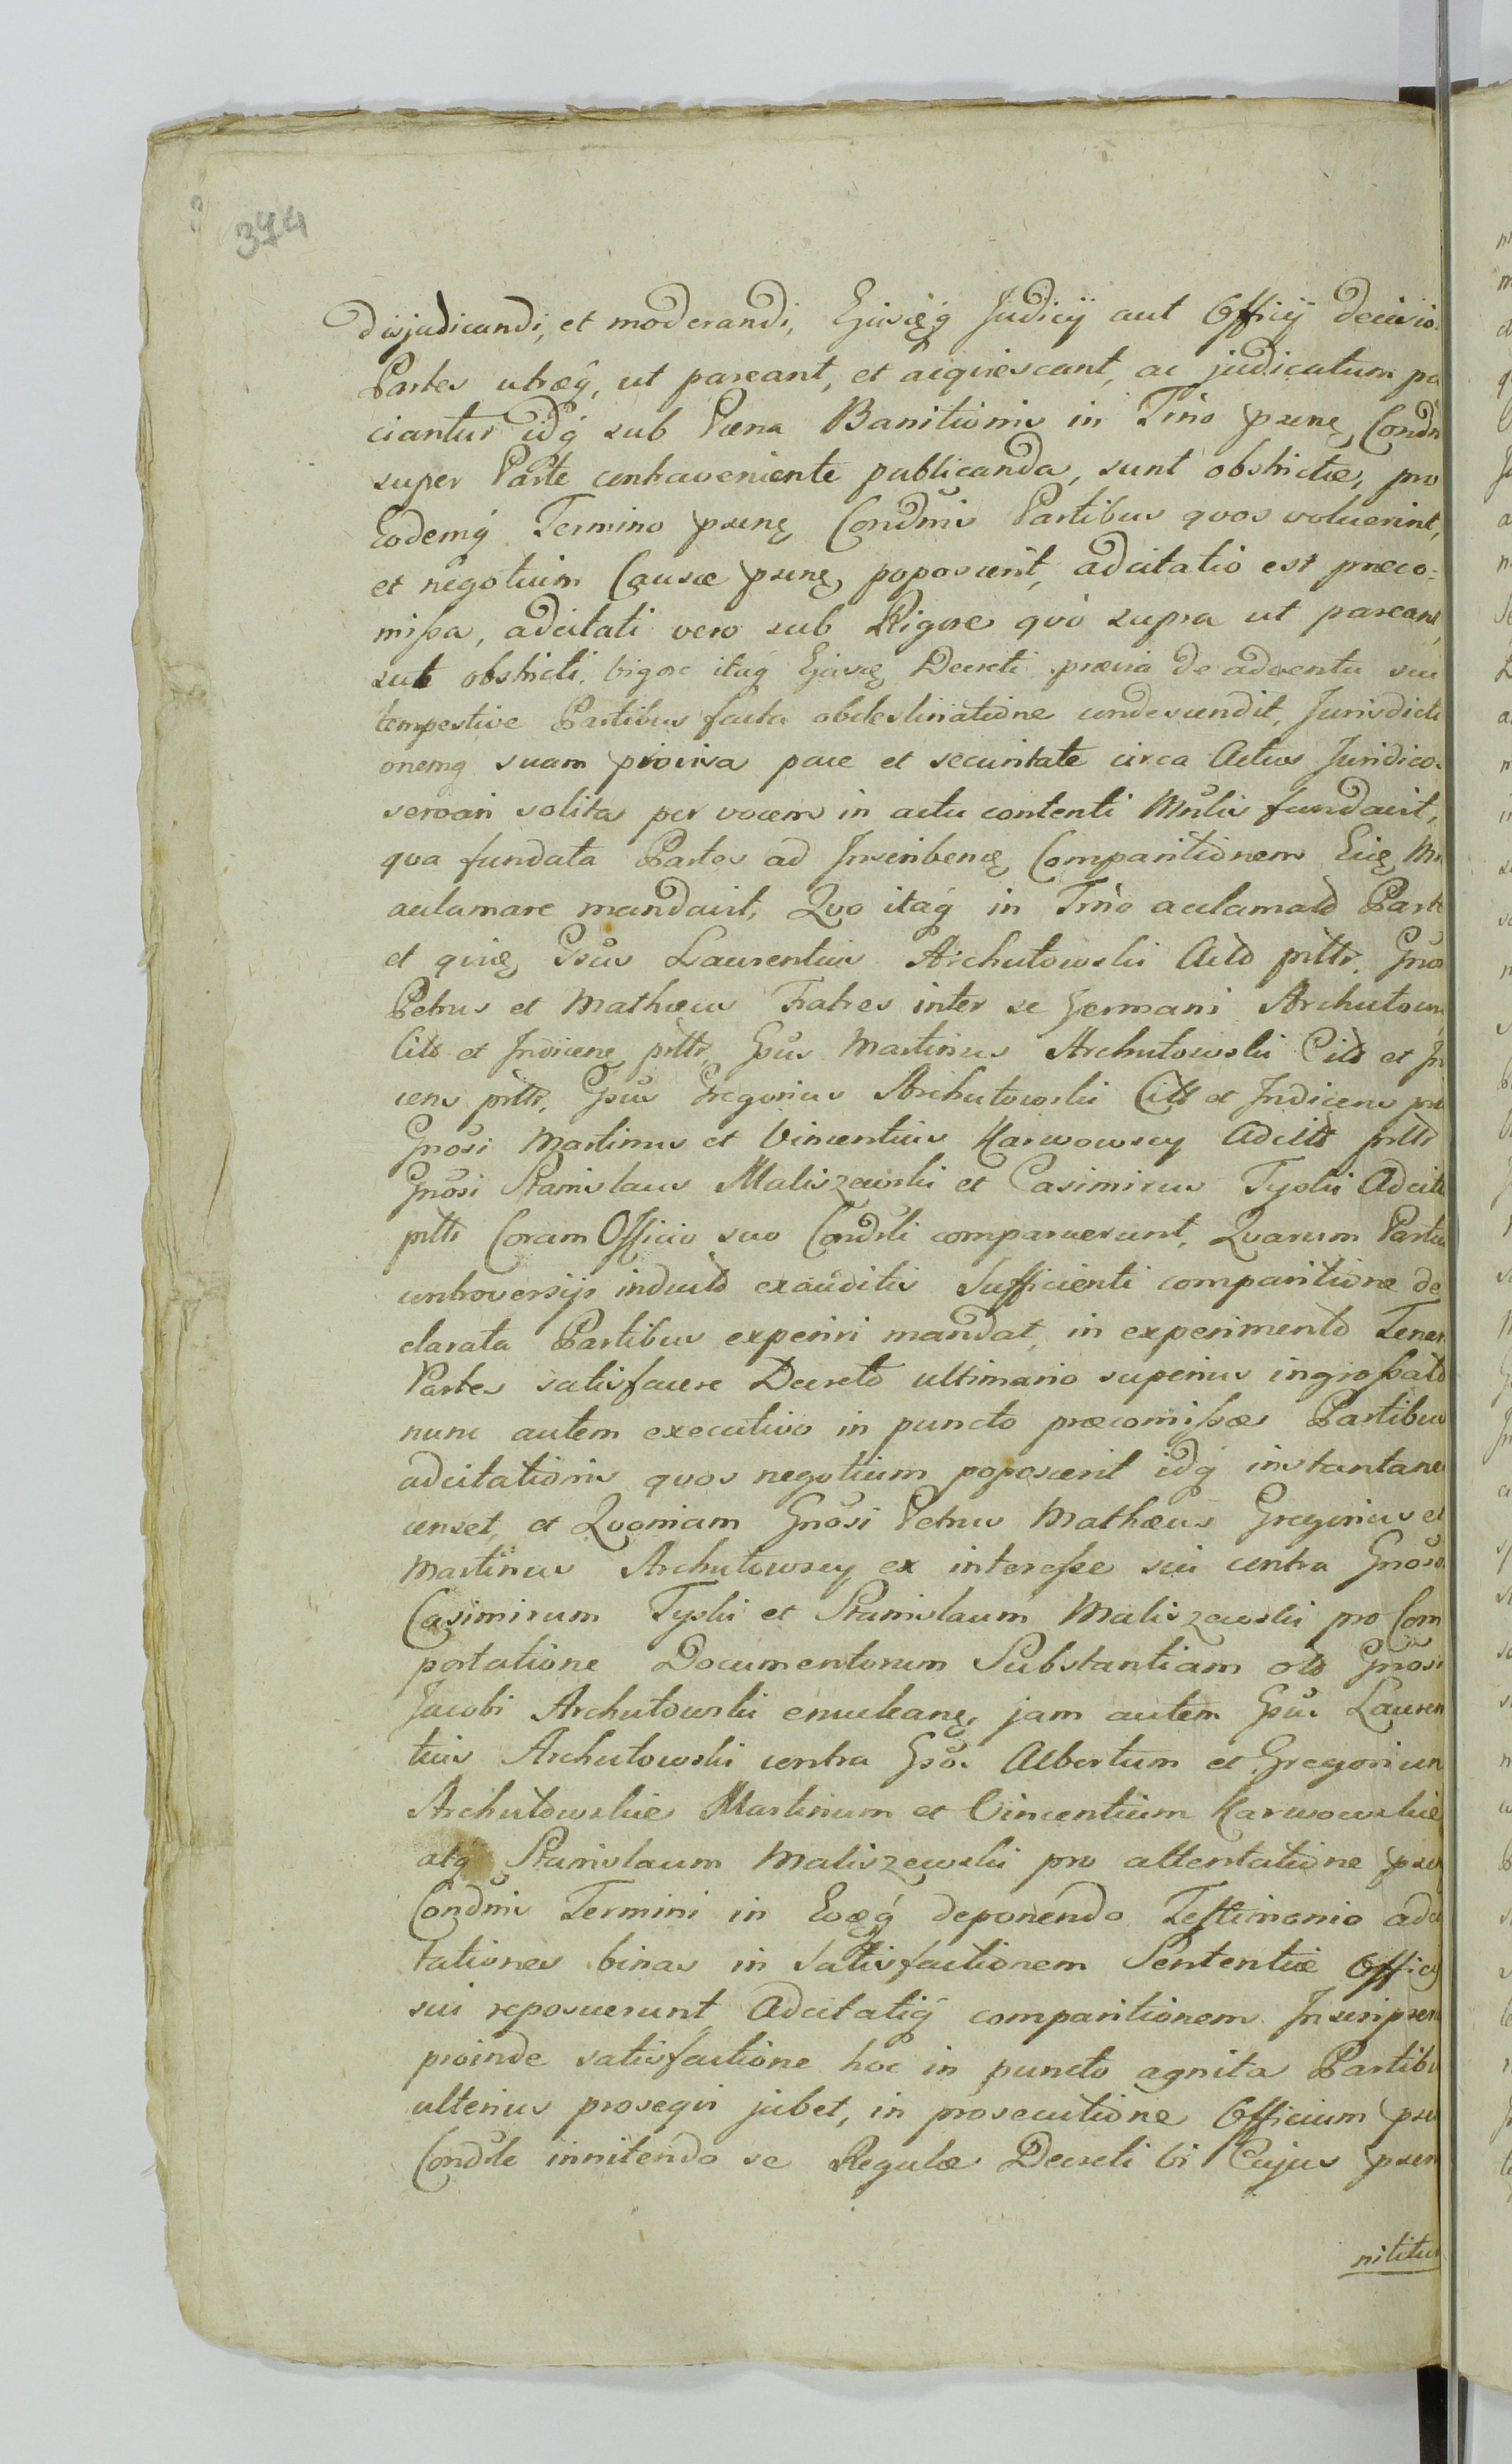 344
disjudicandi, et moderandi, Ejusq́ Judicÿ aut Officÿ decisio
Partes utræq́, ut pareant, et acquiescant, ac judicatum pa
ciantur idq́ sub Pœna Banitionis in Tñο psene Condñ
super Parte contraveniente publicanda, sunt obstrictæ, pro
Eodemq́ Termino psenę Condñi Partibus quos voluerint,
et negotium Causæ psenę, poposcerit, adcitatio est præco=
missa, adcitati vero sub Rigore quo supra ut pareant,
sut obstricti, vigore itaq́ Ejusę Decreti prævia de adventu sui
tempestive Partibus facta obdestinatione condescendit, Jurisdicti
onemq suam provisa pace et securitate circa Actus Juridicos
servari solita per vocem in actu contenti Mnlis fundavit,
qua fundata Partes ad Inscribenę Comparitionem Eię Mn
aclamare mandavit, Quo itaq́ in Tñο acclamato Parte
et quię, Gsus Laurentius Archutowski Acto pttr. Gnos
Petrus et Mathæus Fratres inter se Germani Archutow
Cito et Indicenę pttr, Gsus Martinus Archutowski Cito et In
cens pttr, Gsus Gregorius Archutowski Citt et Indicens ptt
Gnosi Martinus et Vincentius Karwowscy Adcitt pttr
Gnosi Stanislaus Maliszewski et Casimirus Tyski Adcit
pttr Coram Officio suo Condsli comparuerunt, Quarum Partiu
controversijs inducto exauditis Sufficienti comparitione de
clarata Partibus experiri mandat, in experimento Tener
Partes satisfacere Decreto ultimario superius ingrossato
nunc autem executivo in puncto præcomissæ Partibus
adcitationis quos negotium poposcerit idq́ instantane
censet, et Quoniam Gnosi Petrus Mathæus Gregorius et
Martinus Archutowscy ex interesse sui contra Gnoso
Casimirum Tyski et Stanislaum Maliszewski pro Com
portatione Documentorum Substantiam olo Gnosi
Jacobi Archutowski enucleanę, jam autem Gsus Lauren
tius Archutowski contra Gsos Albertum et Gregorium
Archutowskie Martinum et Vincentium Karwowskie
atq́ Stanislaum Maliszewski pro attentatione psen
Condñi Termini in Eoq́ deponendo Testimonio adci
tationes binas in Satisfactionem Sententiæ Officÿ
sui reposuerunt, Adcitatiq́ comparitionem Inscripser
proinde satisfactione hoc in puncto agnita Partibu
ulterius prosequi jubet, in prosecutione Officium psen
Condsle innitendo se Regulæ Decreti vi Cujus psen
nititur